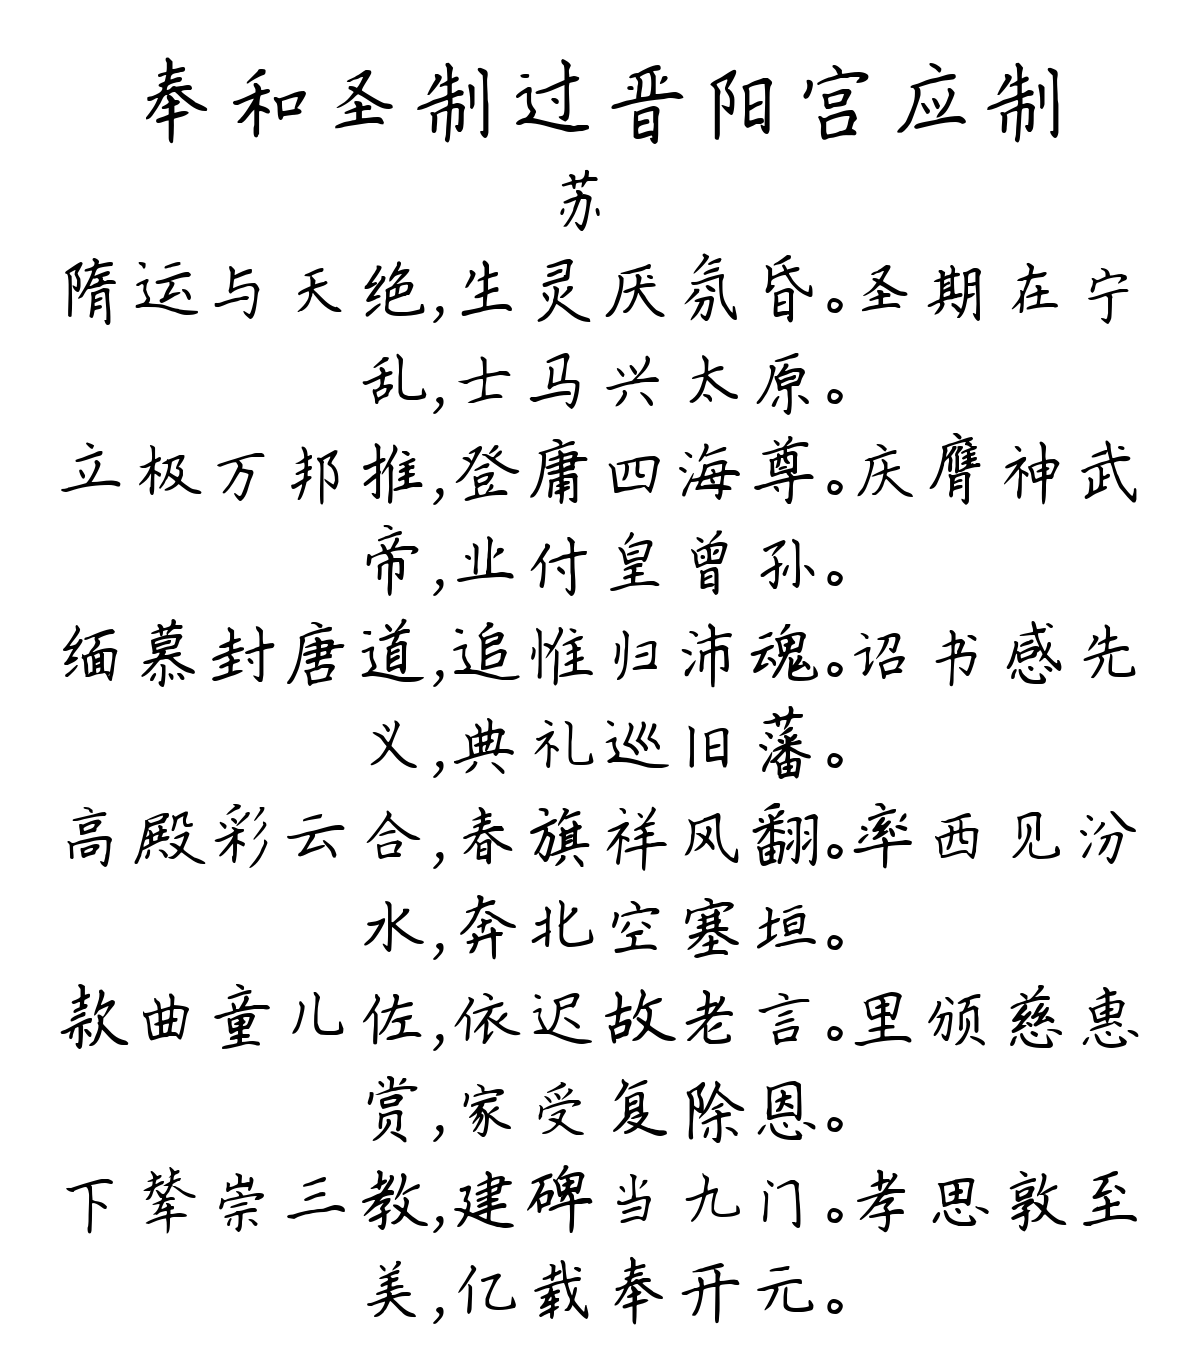 奉和圣制过晋阳宫应制
苏
隋运与天绝,生灵厌氛昏。圣期在宁
乱,士马兴太原。
立极万邦推,登庸四海尊。庆膺神武
帝,业付皇曾孙。
缅慕封唐道,追惟归沛魂。诏书感先
义,典礼巡旧藩。
高殿彩云合,春旗祥风翻。率西见汾
水,奔北空塞垣。
款曲童儿佐,依迟故老言。里颁慈惠
赏,家受复除恩。
下辇崇三教,建碑当九门。孝思敦至
美,亿载奉开元。